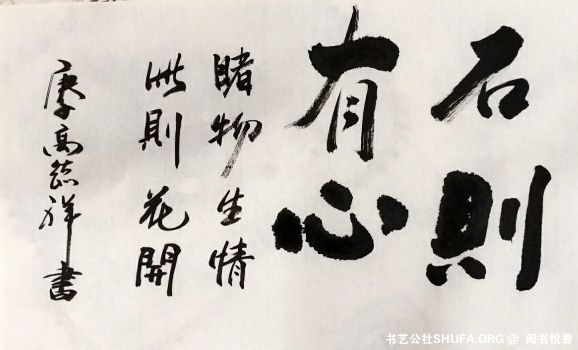 石則
有心
睹物生情
此則花開
庚子高祥書
书艺公社SHUFA.ORG @ 阅书悦香